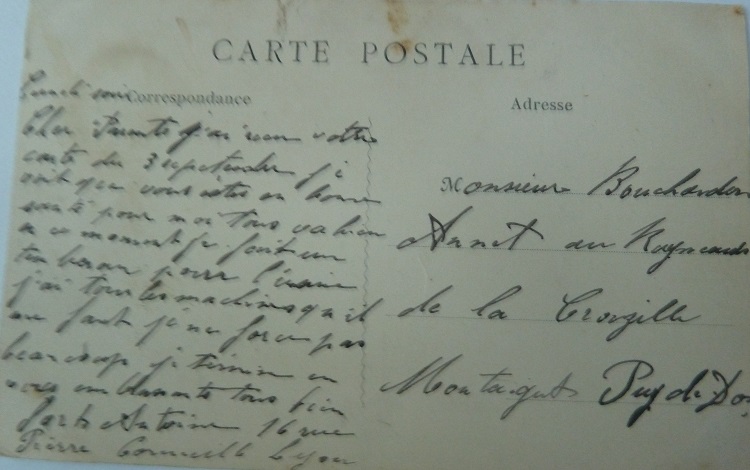 CARTE POSTALE
Correspondance
Adresse
Lundi soir
Cher Parents j'ai reçu votre
carte du 3 septembre je
voit que vous êtes en bonne
santé pour moi tous va bien
en ce moment je fait un
tambour pour l'usine
j'ai tous les machines qu'il
me faut je ne force pas
beaucoup je termine en
vous embrassant tous bien
fort Antoine 16 rue
Pierre Corneille Lyon
Monsieur Bouchardon
Annet au Raynauds
de la Crouzille
Montaigut Puy de Do